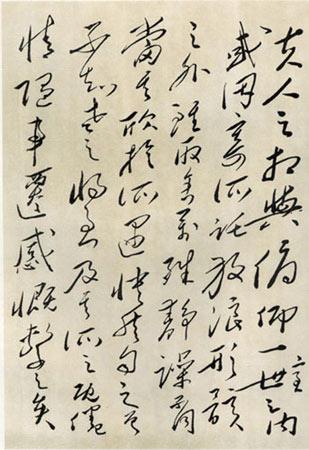 夫人之相與俯仰一世之內
或因寄所託放浪形骸
之外雖取舍萬殊靜躁不同
當其欣於所遇快然自足
不知老之將至及其所之既倦
情隨事遷感慨繫之矣